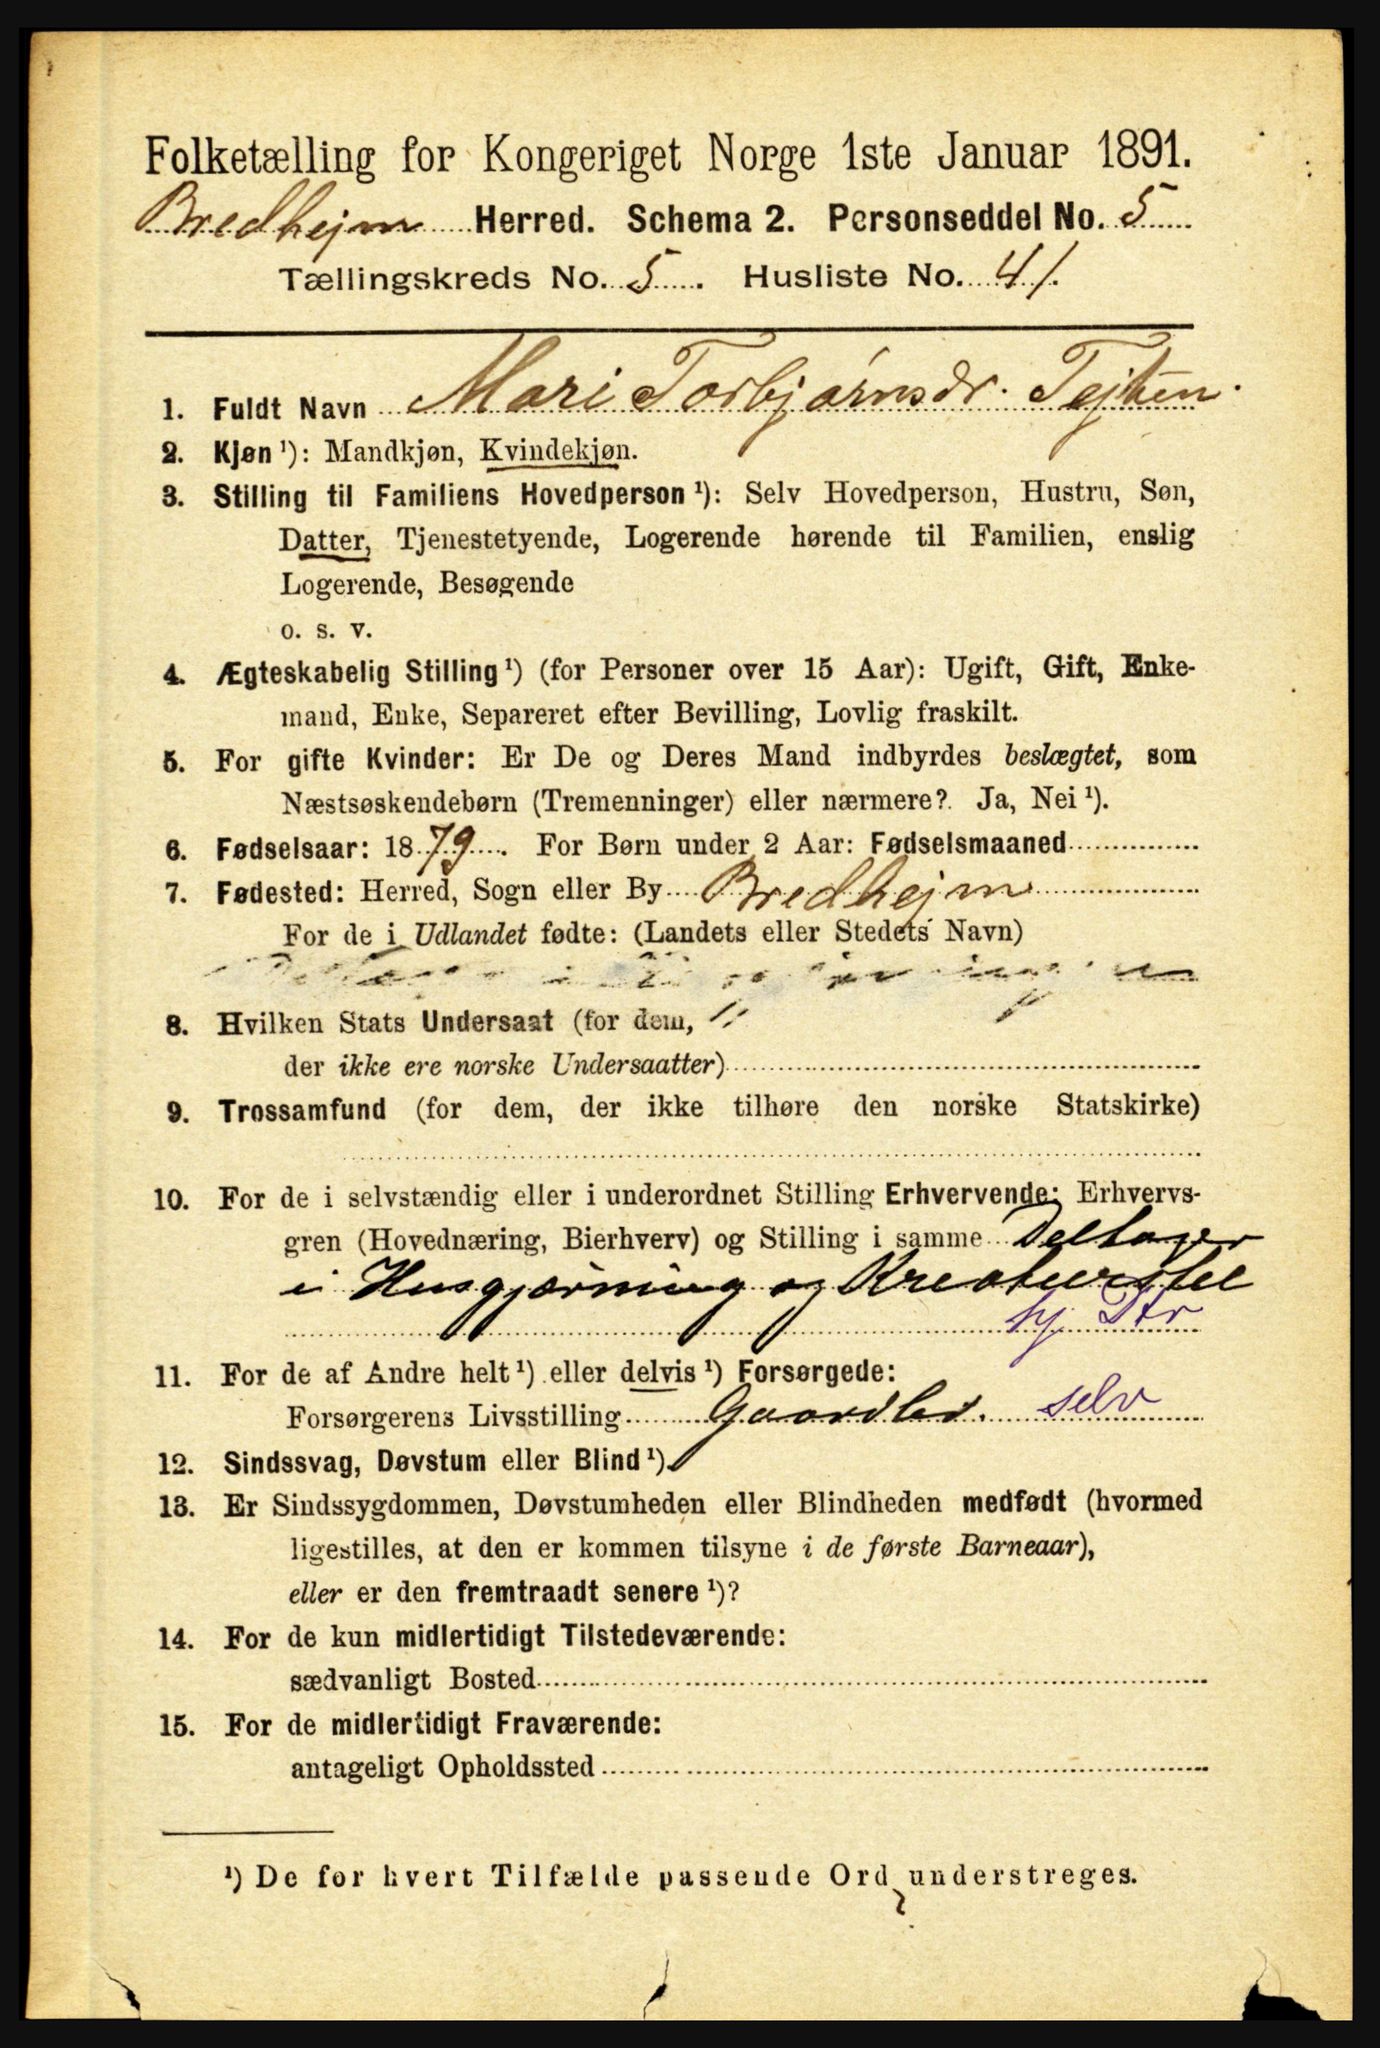 Folketælling for Kongeriget Norge 1ste Januar 1891.
Bredhejm Herred. Schema 2. Personseddel No. 5
Tællingskreds No. 5. Husliste No. 41.
1. Fuldt Navn Mari Torbjørnsdr. Tejten.
2. Kjøn ¹): Mandkjøn, Kvindekjøn.
3. Stilling til Familiens Hovedperson ¹): Selv Hovedperson, Hustru, Søn,
Datter, Tjenestetyende, Logerende hørende til Familien, enslig
Logerende, Besøgende
o. s. v.
4. Ægteskabelig Stilling ¹) (for Personer over 15 Aar): Ugift, Gift, Enke-
mand, Enke, Separeret efter Bevilling, Lovlig fraskilt.
5. For gifte Kvinder: Er De og Deres Mand indbyrdes beslægtet, som
Næstsøskendebørn (Tremenninger) eller nærmere? Ja, Nei ¹).
6. Fødselsaar: 1879. For Børn under 2 Aar: Fødselsmaaned
7. Fødested: Herred, Sogn eller By Bredhejm
For de i Udlandet fødte: (Landets eller Stedets Navn)
8. Hvilken Stats Undersaat (for dem,
der ikke ere norske Undersaatter)
9. Trossamfund (for dem, der ikke tilhøre den norske Statskirke)
10. For de i selvstændig eller i underordnet Stilling Erhvervende: Erhvervs-
gren (Hovednæring, Bierhverv) og Stilling i samme Deltager
i Husgjerning og Kreaturstel
hj Str
11. For de af Andre helt ¹) eller delvis ¹) Forsørgede:
Forsørgerens Livsstilling Gaardbr. selv
12. Sindssvag, Døvstum eller Blind ¹).
13. Er Sindssygdommen, Døvstumheden eller Blindheden medfødt (hvormed
ligestilles, at den er kommen tilsyne i de første Barneaar),
eller er den fremtraadt senere ¹)?
14. For de kun midlertidigt Tilstedeværende:
sædvanligt Bosted
15. For de midlertidigt Fraværende:
antageligt Opholdssted
¹) De for hvert Tilfælde passende Ord understreges.